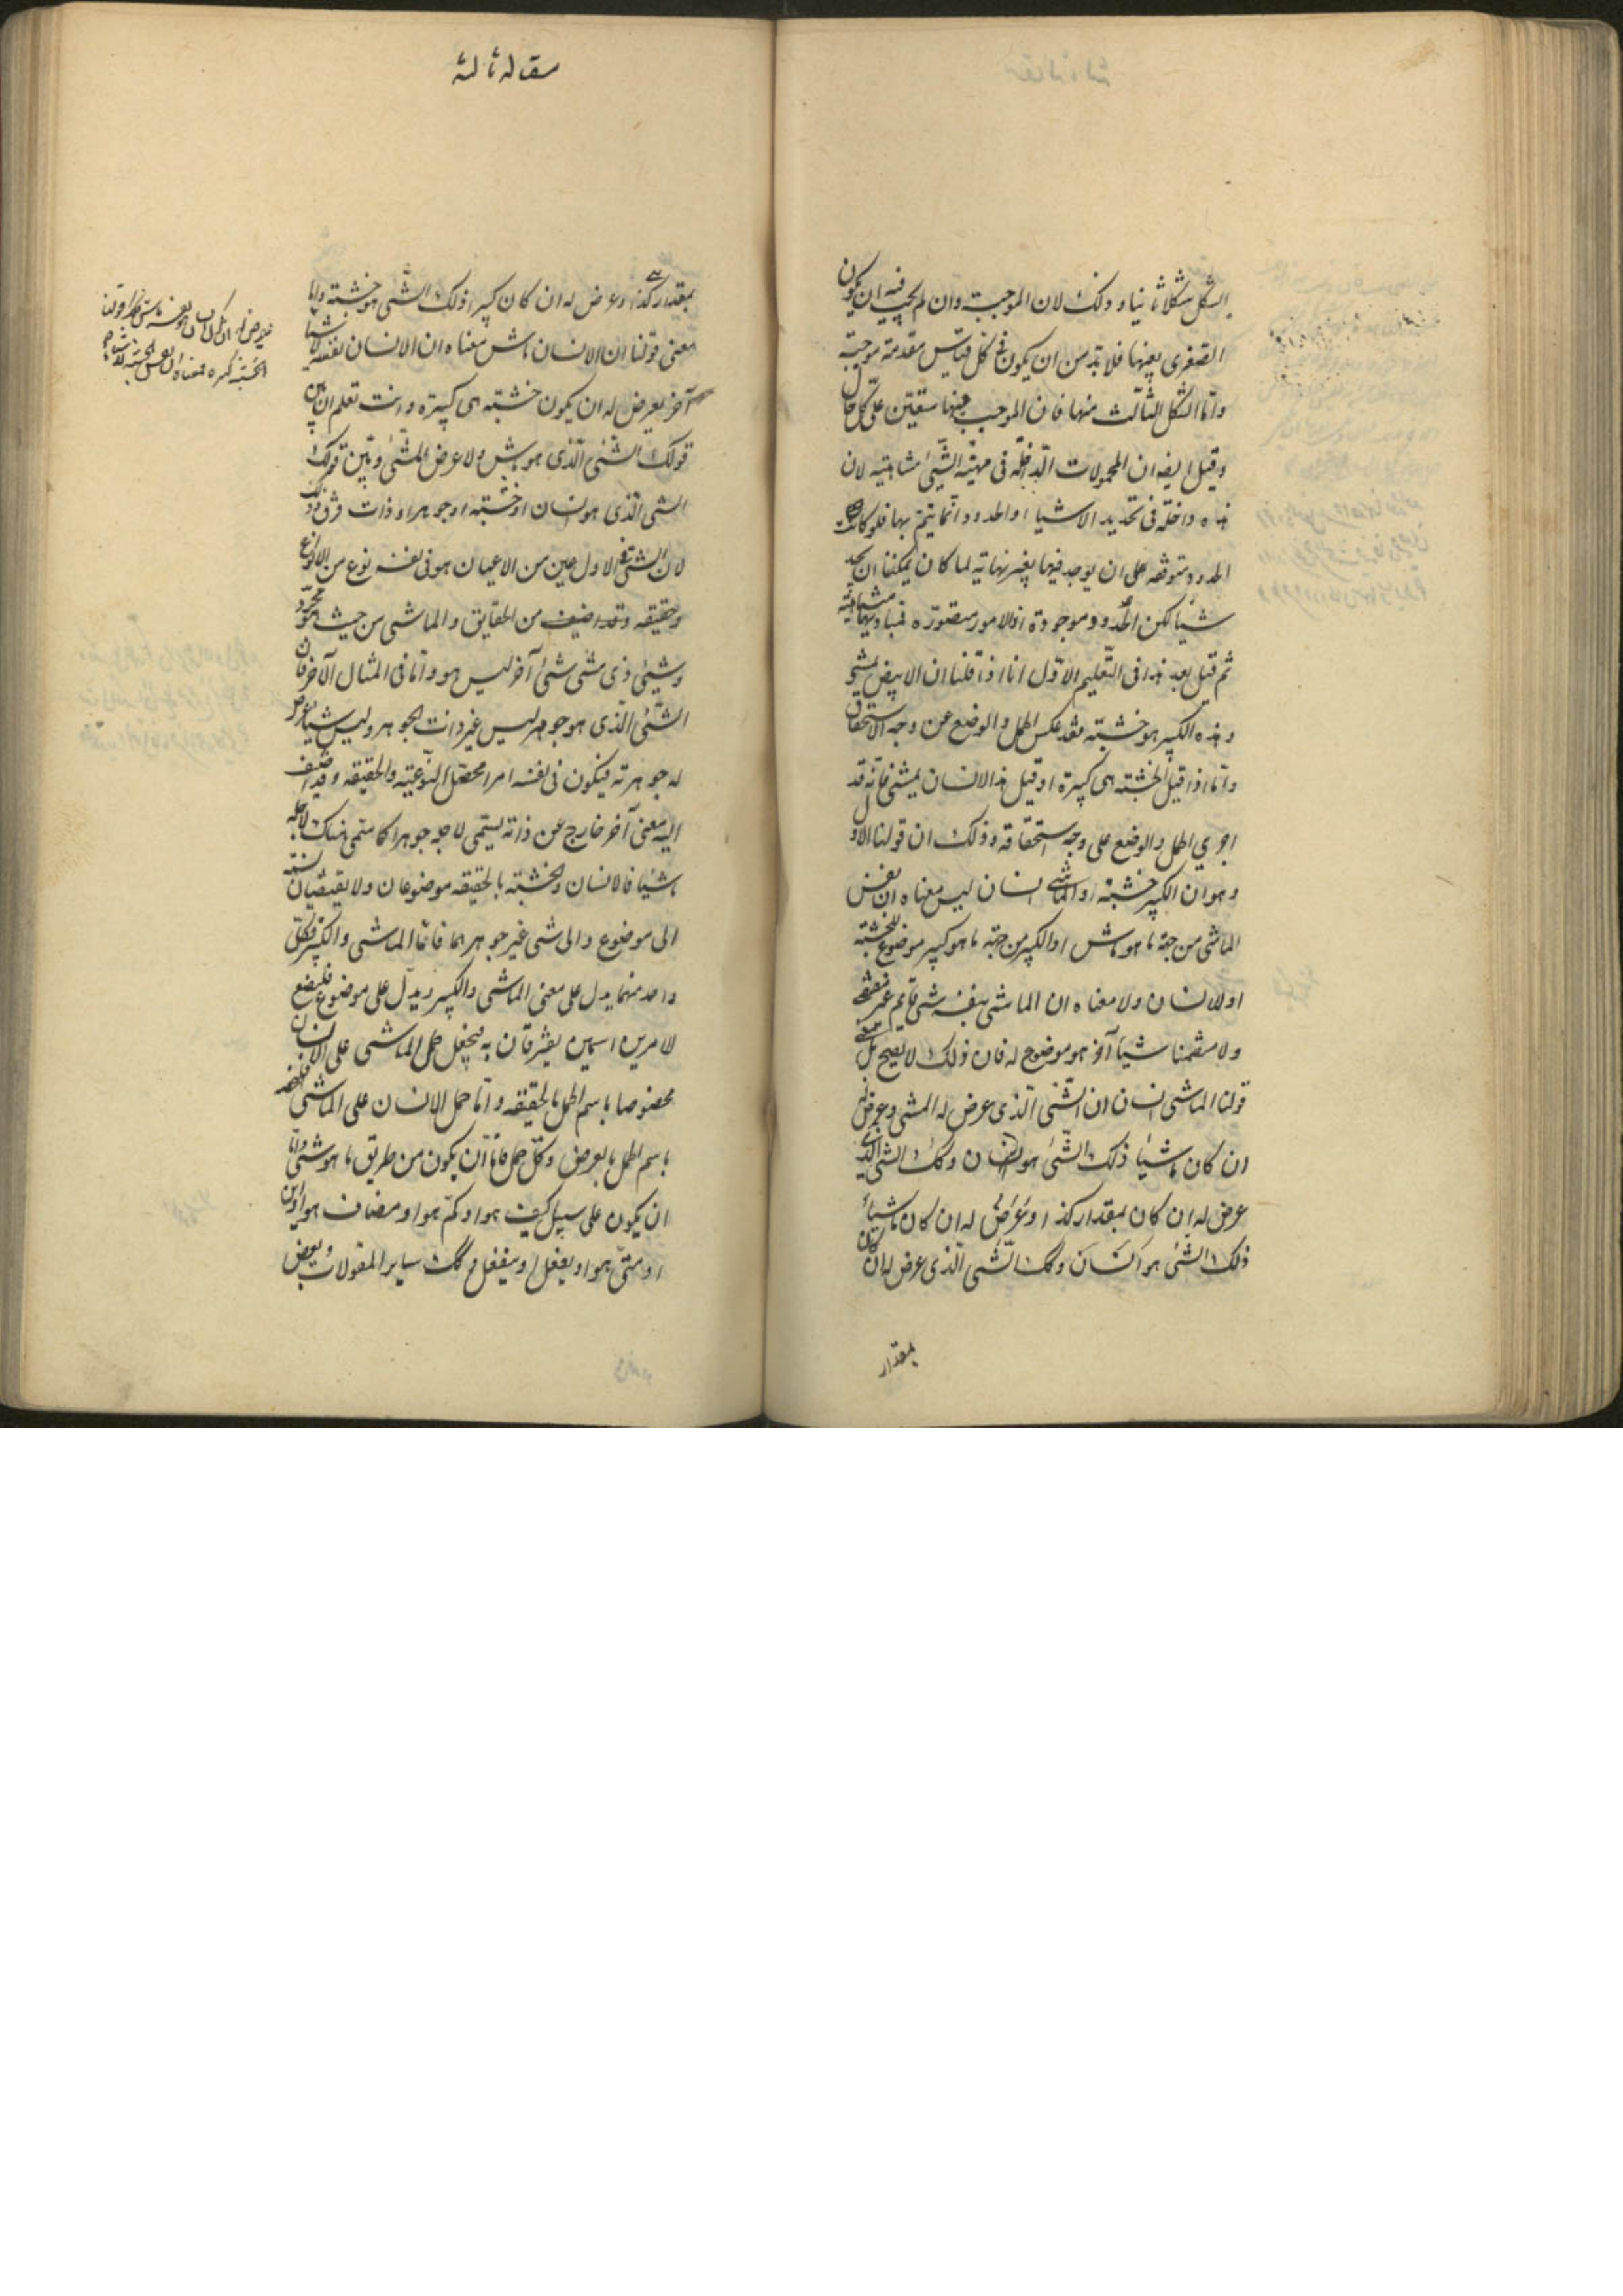 الشكل شكلا ثانيا و ذلك لان الموجبة وان لم يجب فيه ان يكون
الصغرى بعينها فلا بد من ان يكون فى كل قياس مقدمة موجبة
واما الشكل الثالث منها فان الموجب فيها متعين على كل حال
وقيل ايضا ان المحمولات الداخلة فى مهية الشىء متناهية لان
هذه داخلة فى تحديد الاشياء والحدود انما يتم بها فلو كانت
الحدود متوقفة على ان يوجد فيها بغير نهاية لما كان يمكننا ان نحد
شيئا لكن الحدود موجودة اذ الامور متصورة فمباديها متناهية
ثم قيل بعد هذا فى التعليم الاول انا اذا قلنا ان الابيض يمشى
وهذه الكبير هو خشبة فقد عكس الحمل والوضع عن وجه الاستحقاق
واما اذا قيل الخشبة هى كبيرة او قيل هذا الانسان يمشى فانه قد
اجرى الحمل والوضع على وجه استحقاقه وذلك ان قولنا الاول
وهو ان الكبير خشبة او الماشى انسان ليس معناه ان نفس
الماشى من جهة ما هو ماش او الكبير من جهة ما هو كبير موضوع للخشبة
او للانسان ولا معناه ان الماشى بنفسه شى قايم غير مقتض
ولا متضمنا شيئا آخر هو موضوع له فان ذلك لا يصح بل معنى
قولنا الماشى انسان ان الشى الذى عرض له المشى وعرض له
ان كان ماشيا ذلك الشىء هو انسان وكك الشى الذى
عرض له ان كان بمقدار كذا وعرض له ان كان ماشيا
ذلك الشىء هو انسان وكك الشى الذى عرض له ان كان
بمقدار
مقاله ثالثه
بمقدار كذا وعرض له ان كان كبيرا ذلك الشى هو خشبة واما
معنى قولنا ان الانسان ماش معناه ان الانسان نفسه لا شيئا
آخر يعرض له ان يكون خشبة هى كبيرة وانت تعلم ان بين
قولك الشىء الذى هو ماش ولا عرض المشى وبين قولك
الشى الذى هو انسان او خشبة او جوهر او ذات فرق وذلك
لان الشى فى الاول عين من الاعيان هو فى نفسه نوع من الانواع
وحقيقه وقد اضيف من الحقايق والماشى من حيث هو مجرد
وشىء ذى مشى شىء آخر ليس هو واما فى المثال الآخر فان
الشىء الذى هو جوهر ليس غير ذات الجوهر وليس شيئا يعرض
له جوهرته فيكون فى نفسه امرا محصل النوعية والحقيقه وقد اضيف
اليه معنى آخر خارج عن ذاته يسمى لاجله جوهرا كما سمى هناك لاجله
ماشيا فالانسان والخشبة بالحقيقه موضوعان ولا يقتضيان نسبة
الى موضوع والى شى غير جوهرهما فاما الماشى والكبير فكل
واحد منهما يدل على معنى الماشى والكبير ويدل على موضوع فليضع
لامرين اسمين يفترقان به فيجعل حمل الماشى على الانسان
مخصوصا باسم الحمل بالحقيقه واما حمل الانسان على الماشى فليخصه
باسم الحمل بالعرض وكل حمل فاما ان يكون من طريق ما هو شىء واما
ان يكون على سبيل كيف هو او كم هو او مضاف هو او اين
او متى هو او يفعل او ينفعل وكك ساير المقولات وبعض